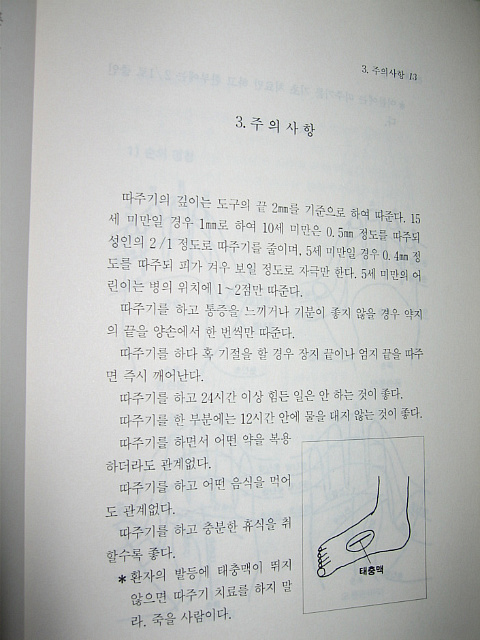 3. 주의사항 13
3. 주 의 사 항
따주기의 깊이는 도구의 끝 2㎜를 기준으로 하여 따준다. 15
세 미만일 경우 1㎜로 하여 10세 미만은 0.5㎜ 정도를 따주되
성인의 2/1 정도로 따주기를 줄이며, 5세 미만일 경우 0.4㎜ 정
도를 따주되 피가 겨우 보일 정도로 자극만 한다. 5세 미만의 어
린이는 병의 위치에 1~2점만 따준다.
따주기를 하고 통증을 느끼거나 기분이 좋지 않을 경우 약지
의 끝을 양손에서 한 번씩만 따준다.
따주기를 하다 혹 기절을 할 경우 장지 끝이나 엄지 끝을 따주
면 즉시 깨어난다.
따주기를 하고 24시간 이상 힘든 일은 안 하는 것이 좋다.
따주기를 한 부분에는 12시간 안에 물을 대지 않는 것이 좋다.
따주기를 하면서 어떤 약을 복용
하더라도 관계없다.
따주기를 하고 어떤 음식을 먹어
도 관계없다.
따주기를 하고 충분한 휴식을 취
할수록 좋다.
* 환자의 발등에 태충맥이 뛰지
않으면 따주기 치료를 하지 말
라. 죽을 사람이다.
태충맥